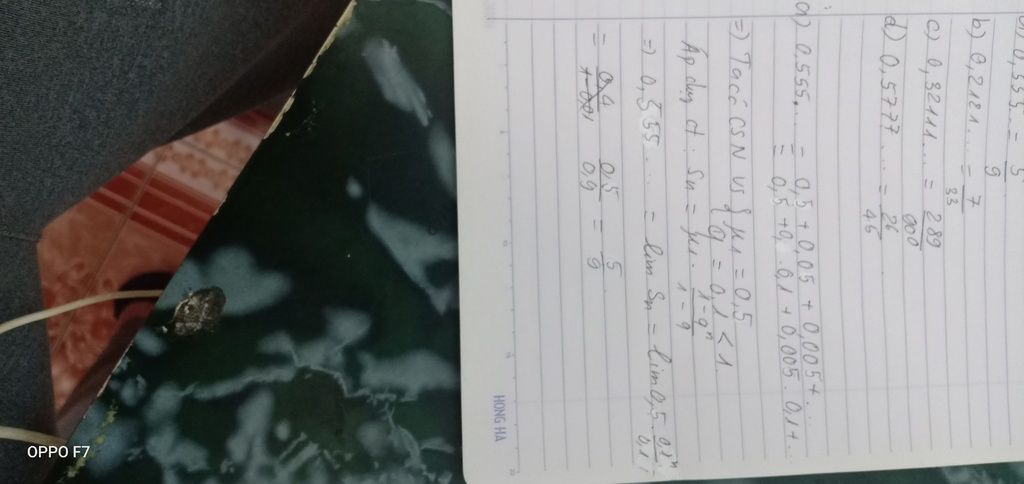 a) 0,555 = 5/9
b) 0,2121... = 7/33
c) 0,32111... = 289/900
d) 0,5777... = 26/45
a) 0,555... = 0,5 + 0,05 + 0,005 + ...
= 0,5 + 0, .0,1 + 0,005 . 0,1 + ...
=) Ta có CSN vs { u1 = 0,5
q = 0,1 < 1
Áp dụng ct: Sn = u1 . 1-qⁿ/1-q
=) 0,555... = lim Sn = lim 0,5 .
= 0,5/0,9 = 5/9
HONG HA
OPPO F7